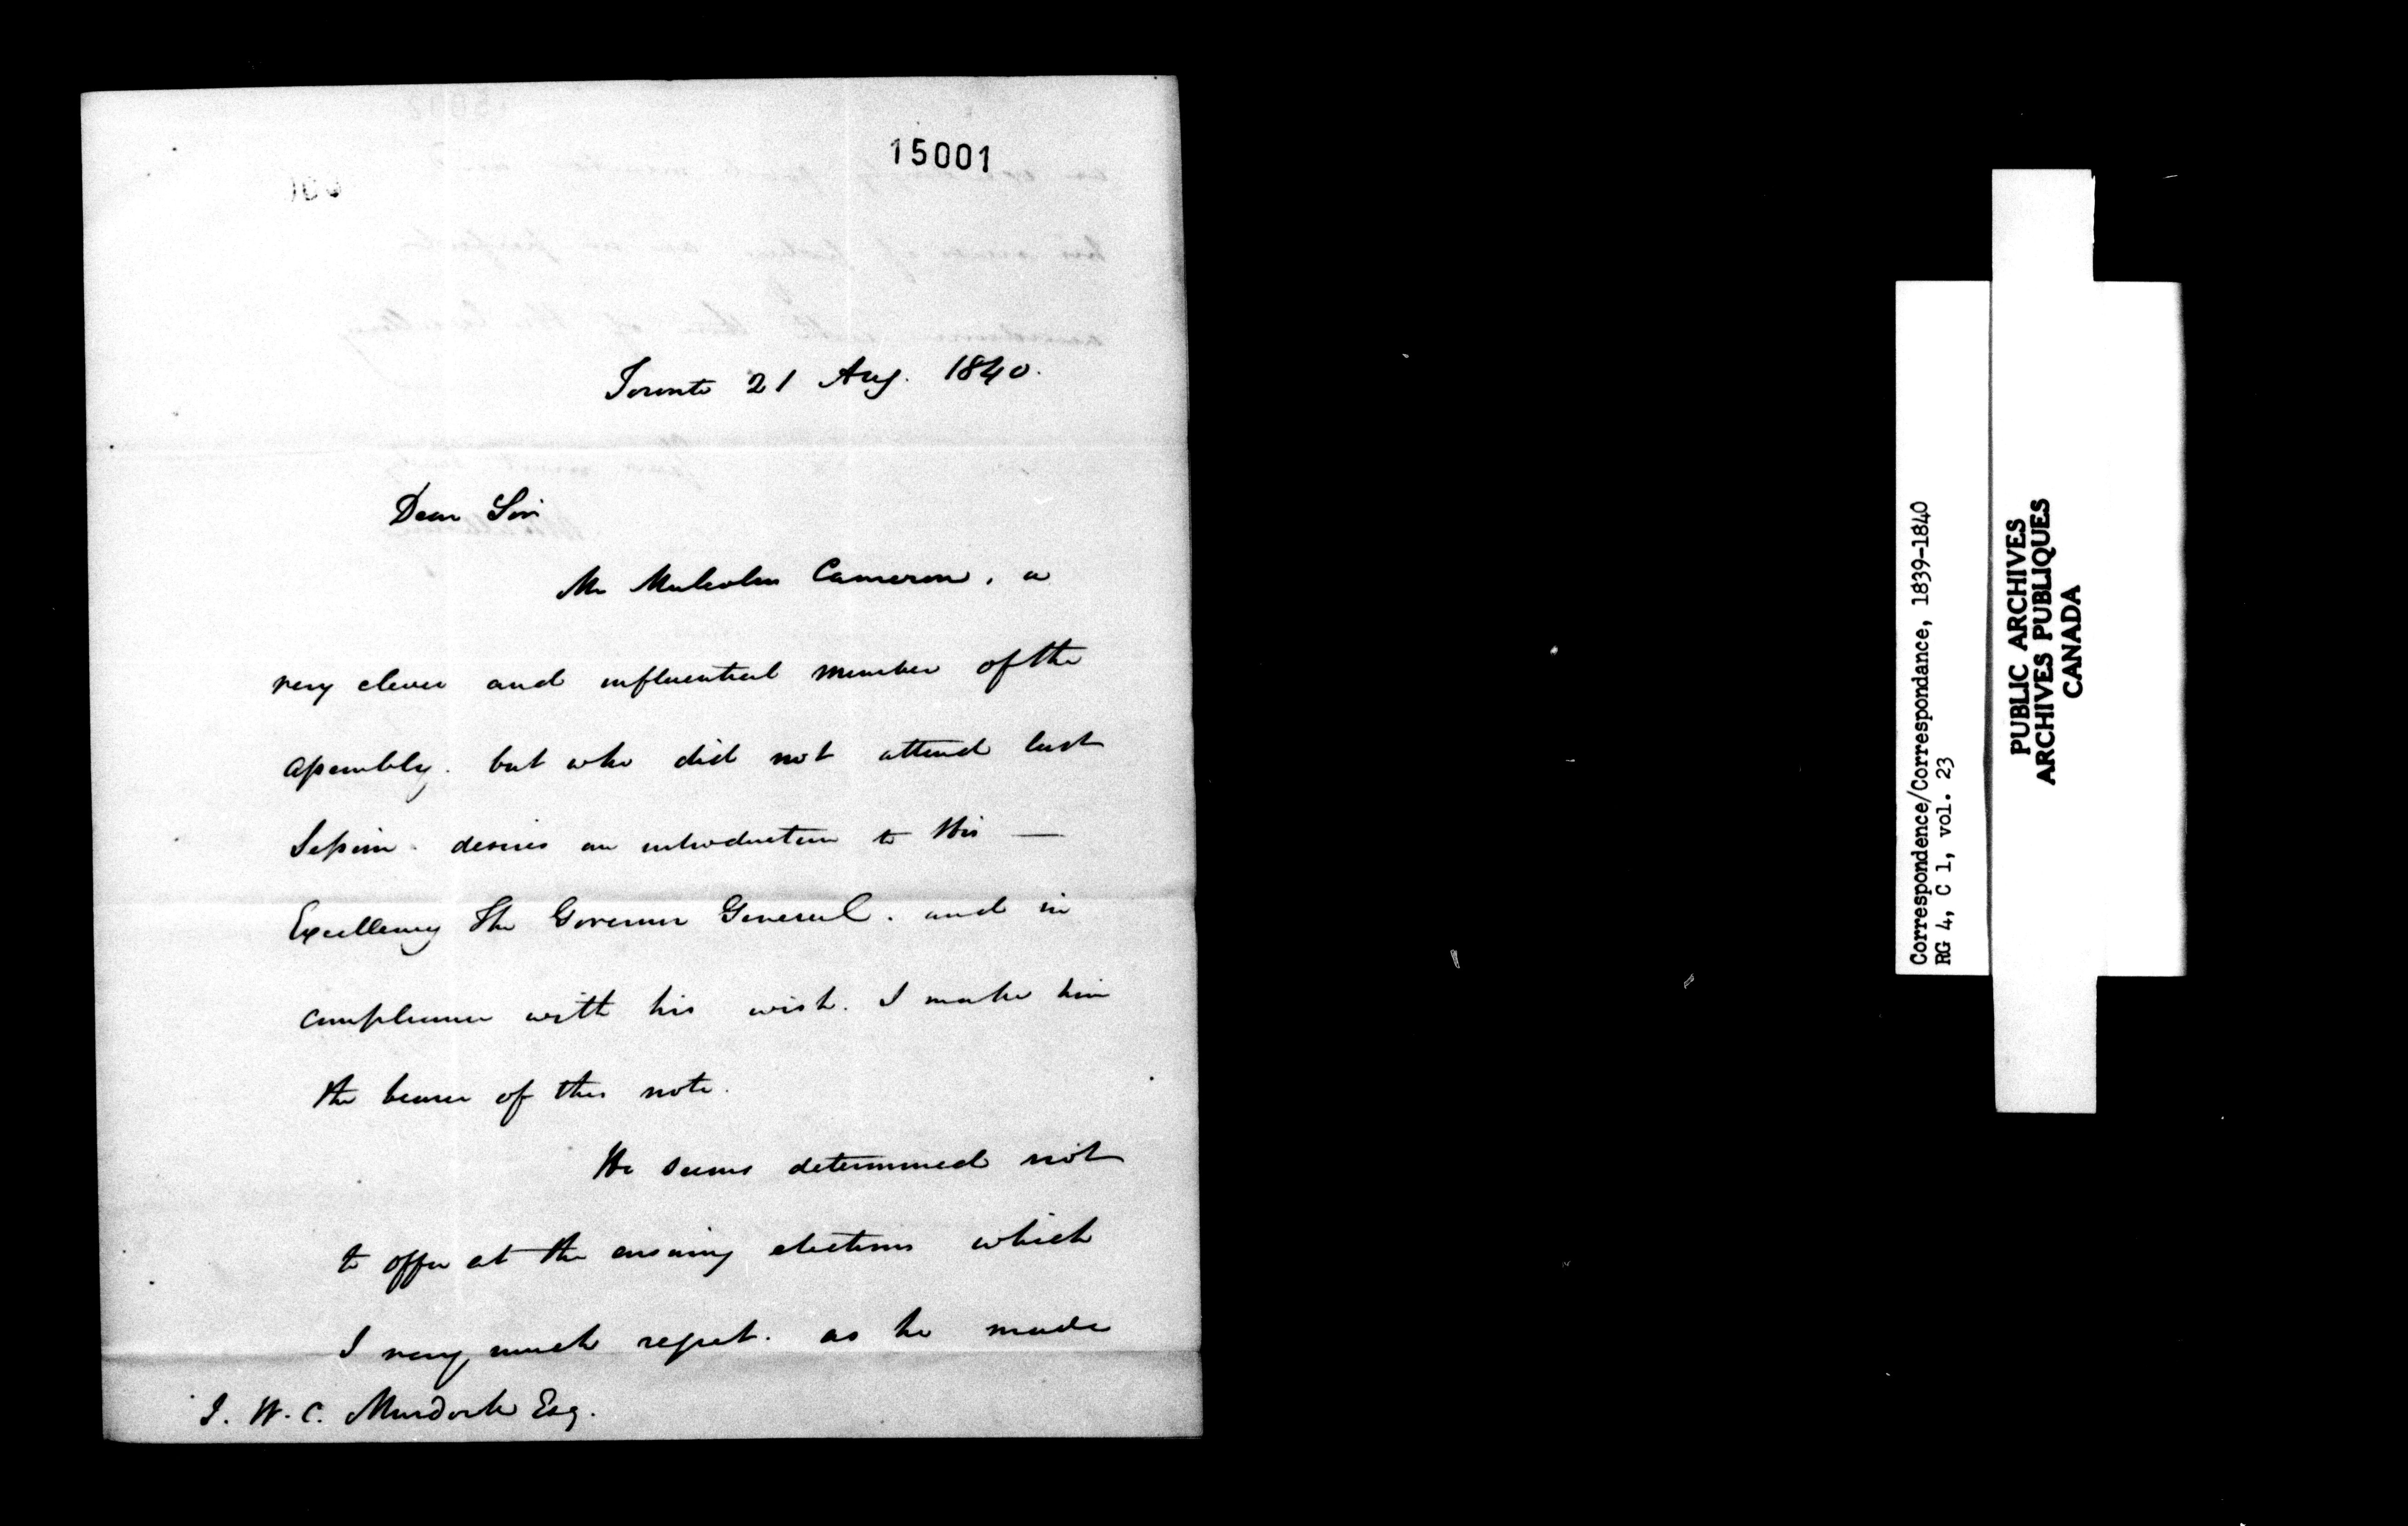 15001
Toronto 21 Aug. 1840.
Dear Sir
Mr Malcolm Cameron, a
very clever and influential member of the
assembly. but who did not attend last
Session. desires an introduction to His —
Excellency The Governor General. and in
compliance with his wish. I make him
the bearer of this note.
He seems determined not
to offer at the ensuing elections which
I very much regret. as he made
J. W. C. Murdoch Esq.
Correspondence/Correspondance, 1839-1840
RG 4, C 1, vol. 23
PUBLIC ARCHIVES
ARCHIVES PUBLIQUES
CANADA